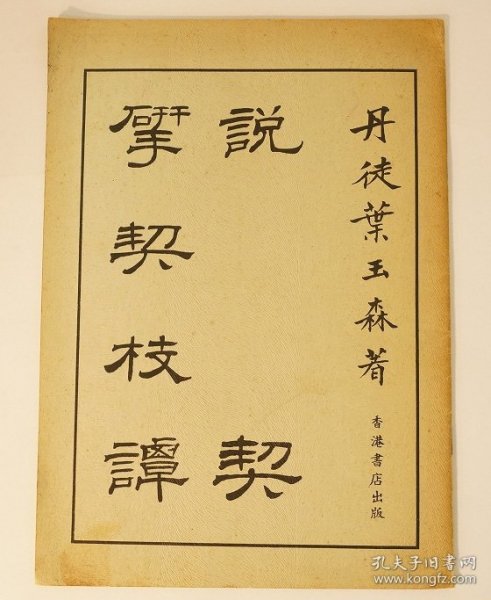 丹徒葉玉森著
香港書店出版
說契
揅契枝譚
孔夫子旧书网
www.kongfz.com